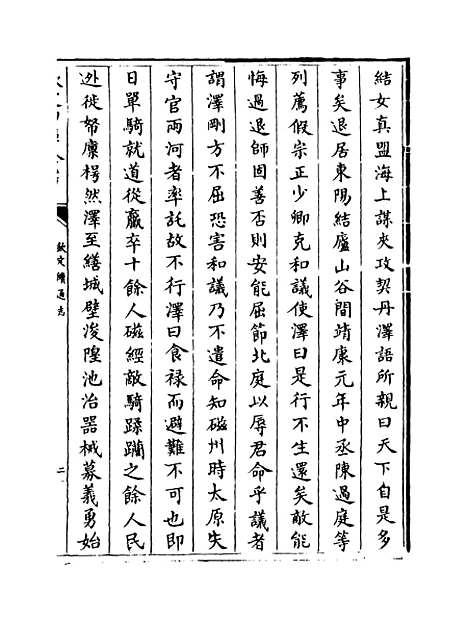 結女真盟海上謀夾攻契丹澤語所親曰天下自是多
事矣退居東陽結廬山谷間靖康元年中丞陳過庭等
列薦假宗正少卿充和議使澤曰是行不生還矣敵能
悔過退師固善否則安能屈節北庭以辱君命乎議者
謂澤剛方不屈恐害和議乃不遣命知磁州時太原失
守官兩河者率託故不行澤曰食禄而避難不可也即
日單騎就道從羸卒十餘人磁經敵騎蹂躪之餘人民
迯徙帑廪枵然澤至繕城壁浚隍池冶器械募義勇始
欽定續通志
二